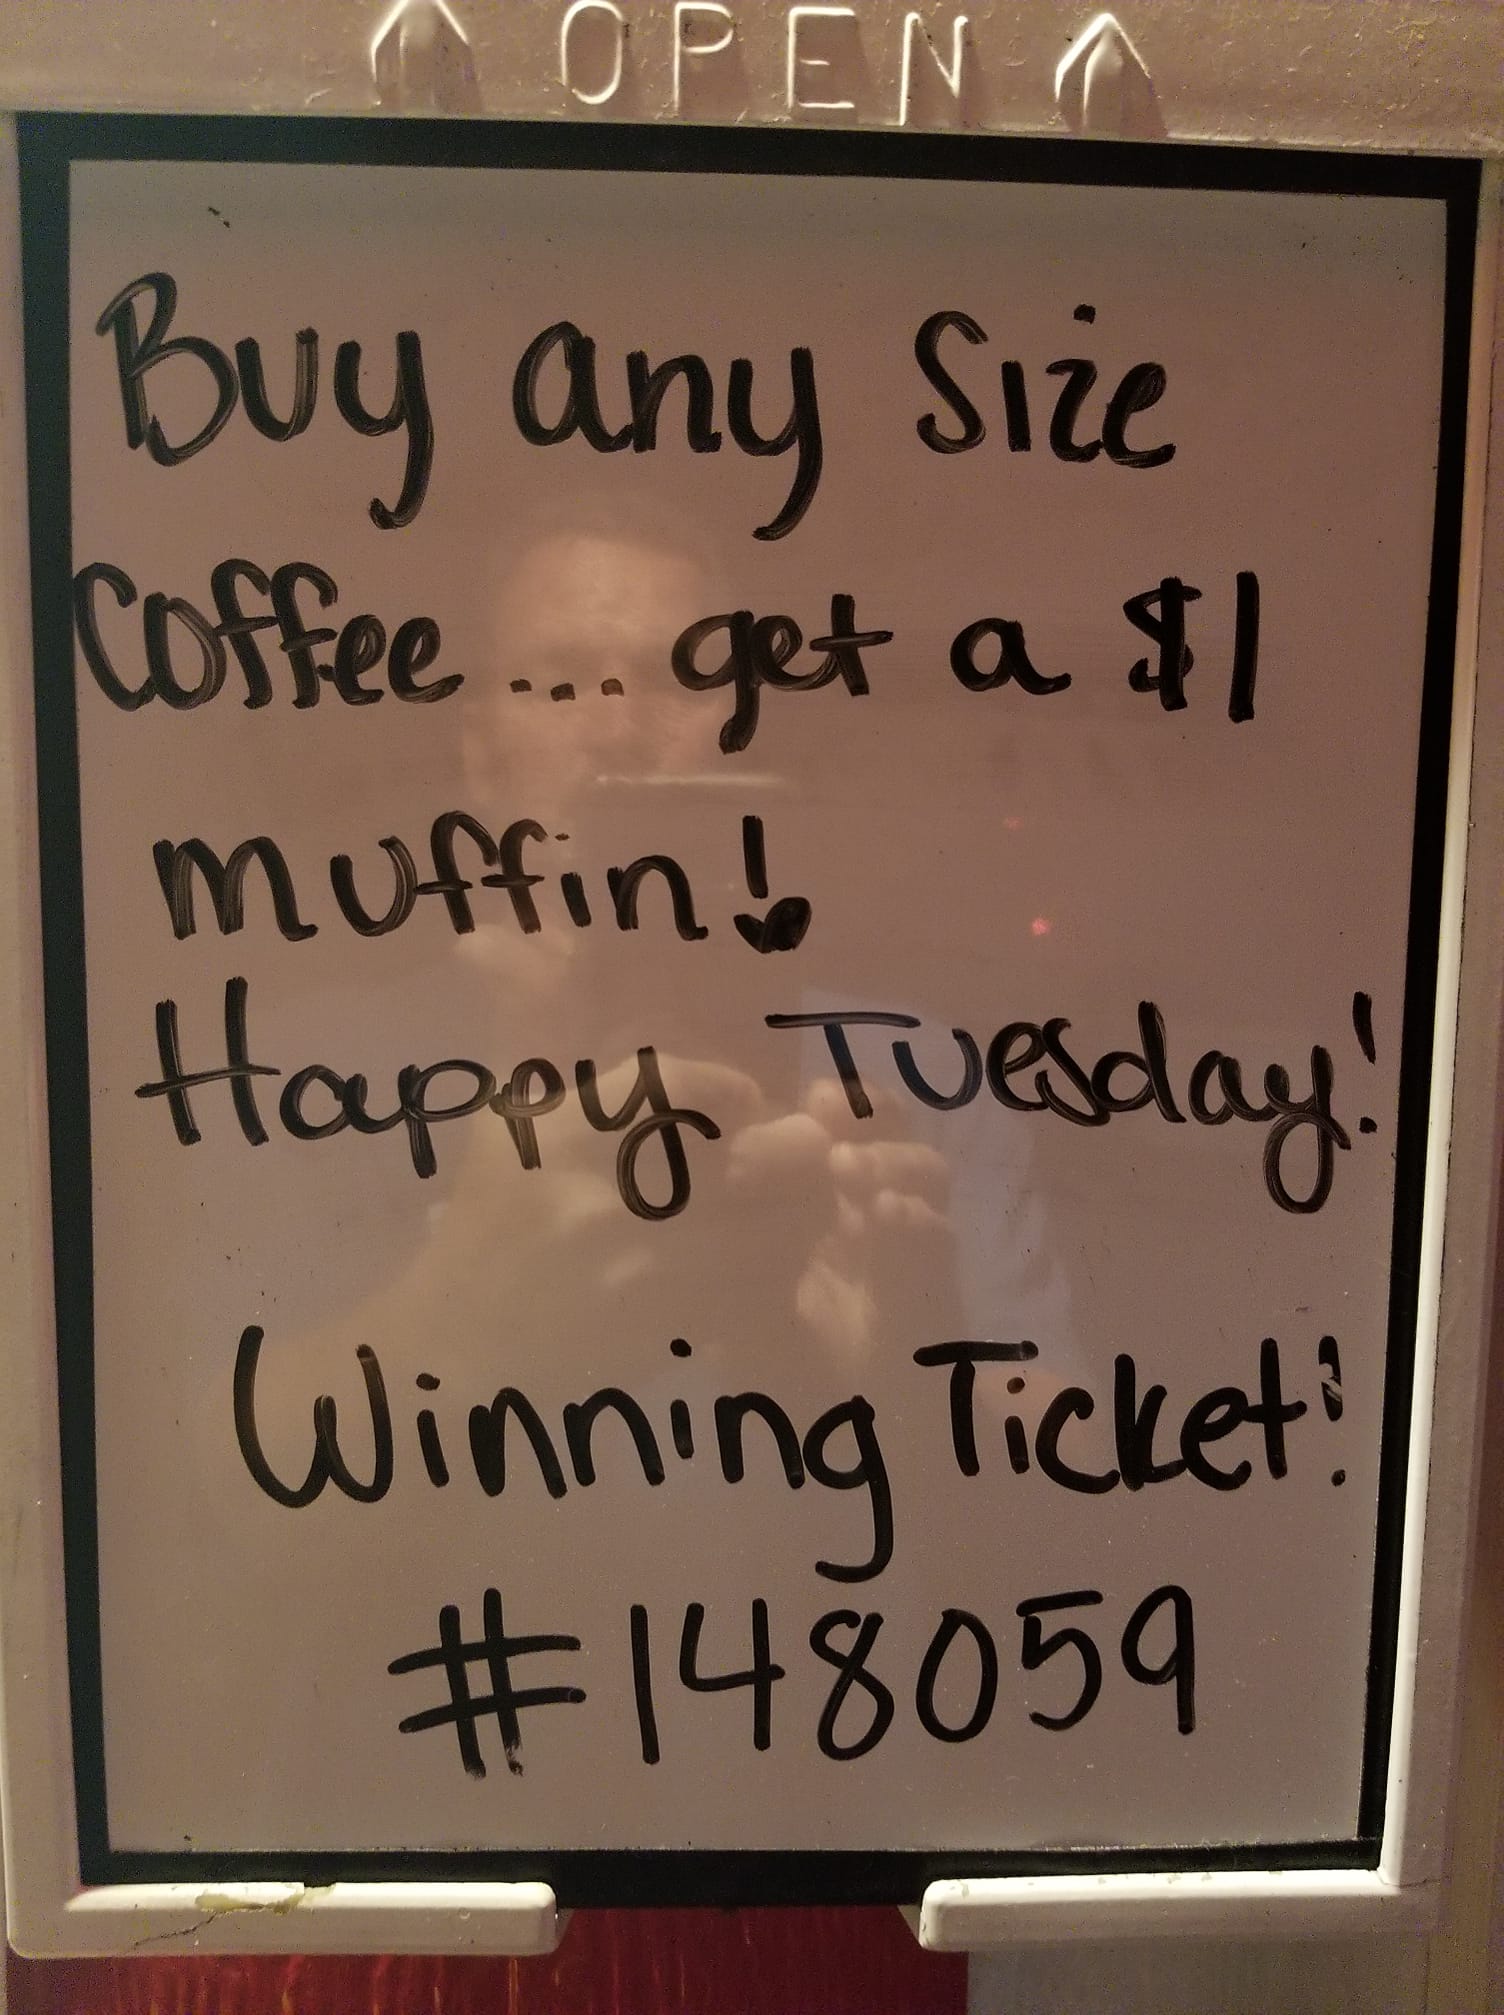 ↑ OPEN ↑
Buy any Size
Coffee... get a $1
muffin!
Happy Tuesday!
Winning Ticket!
#148059